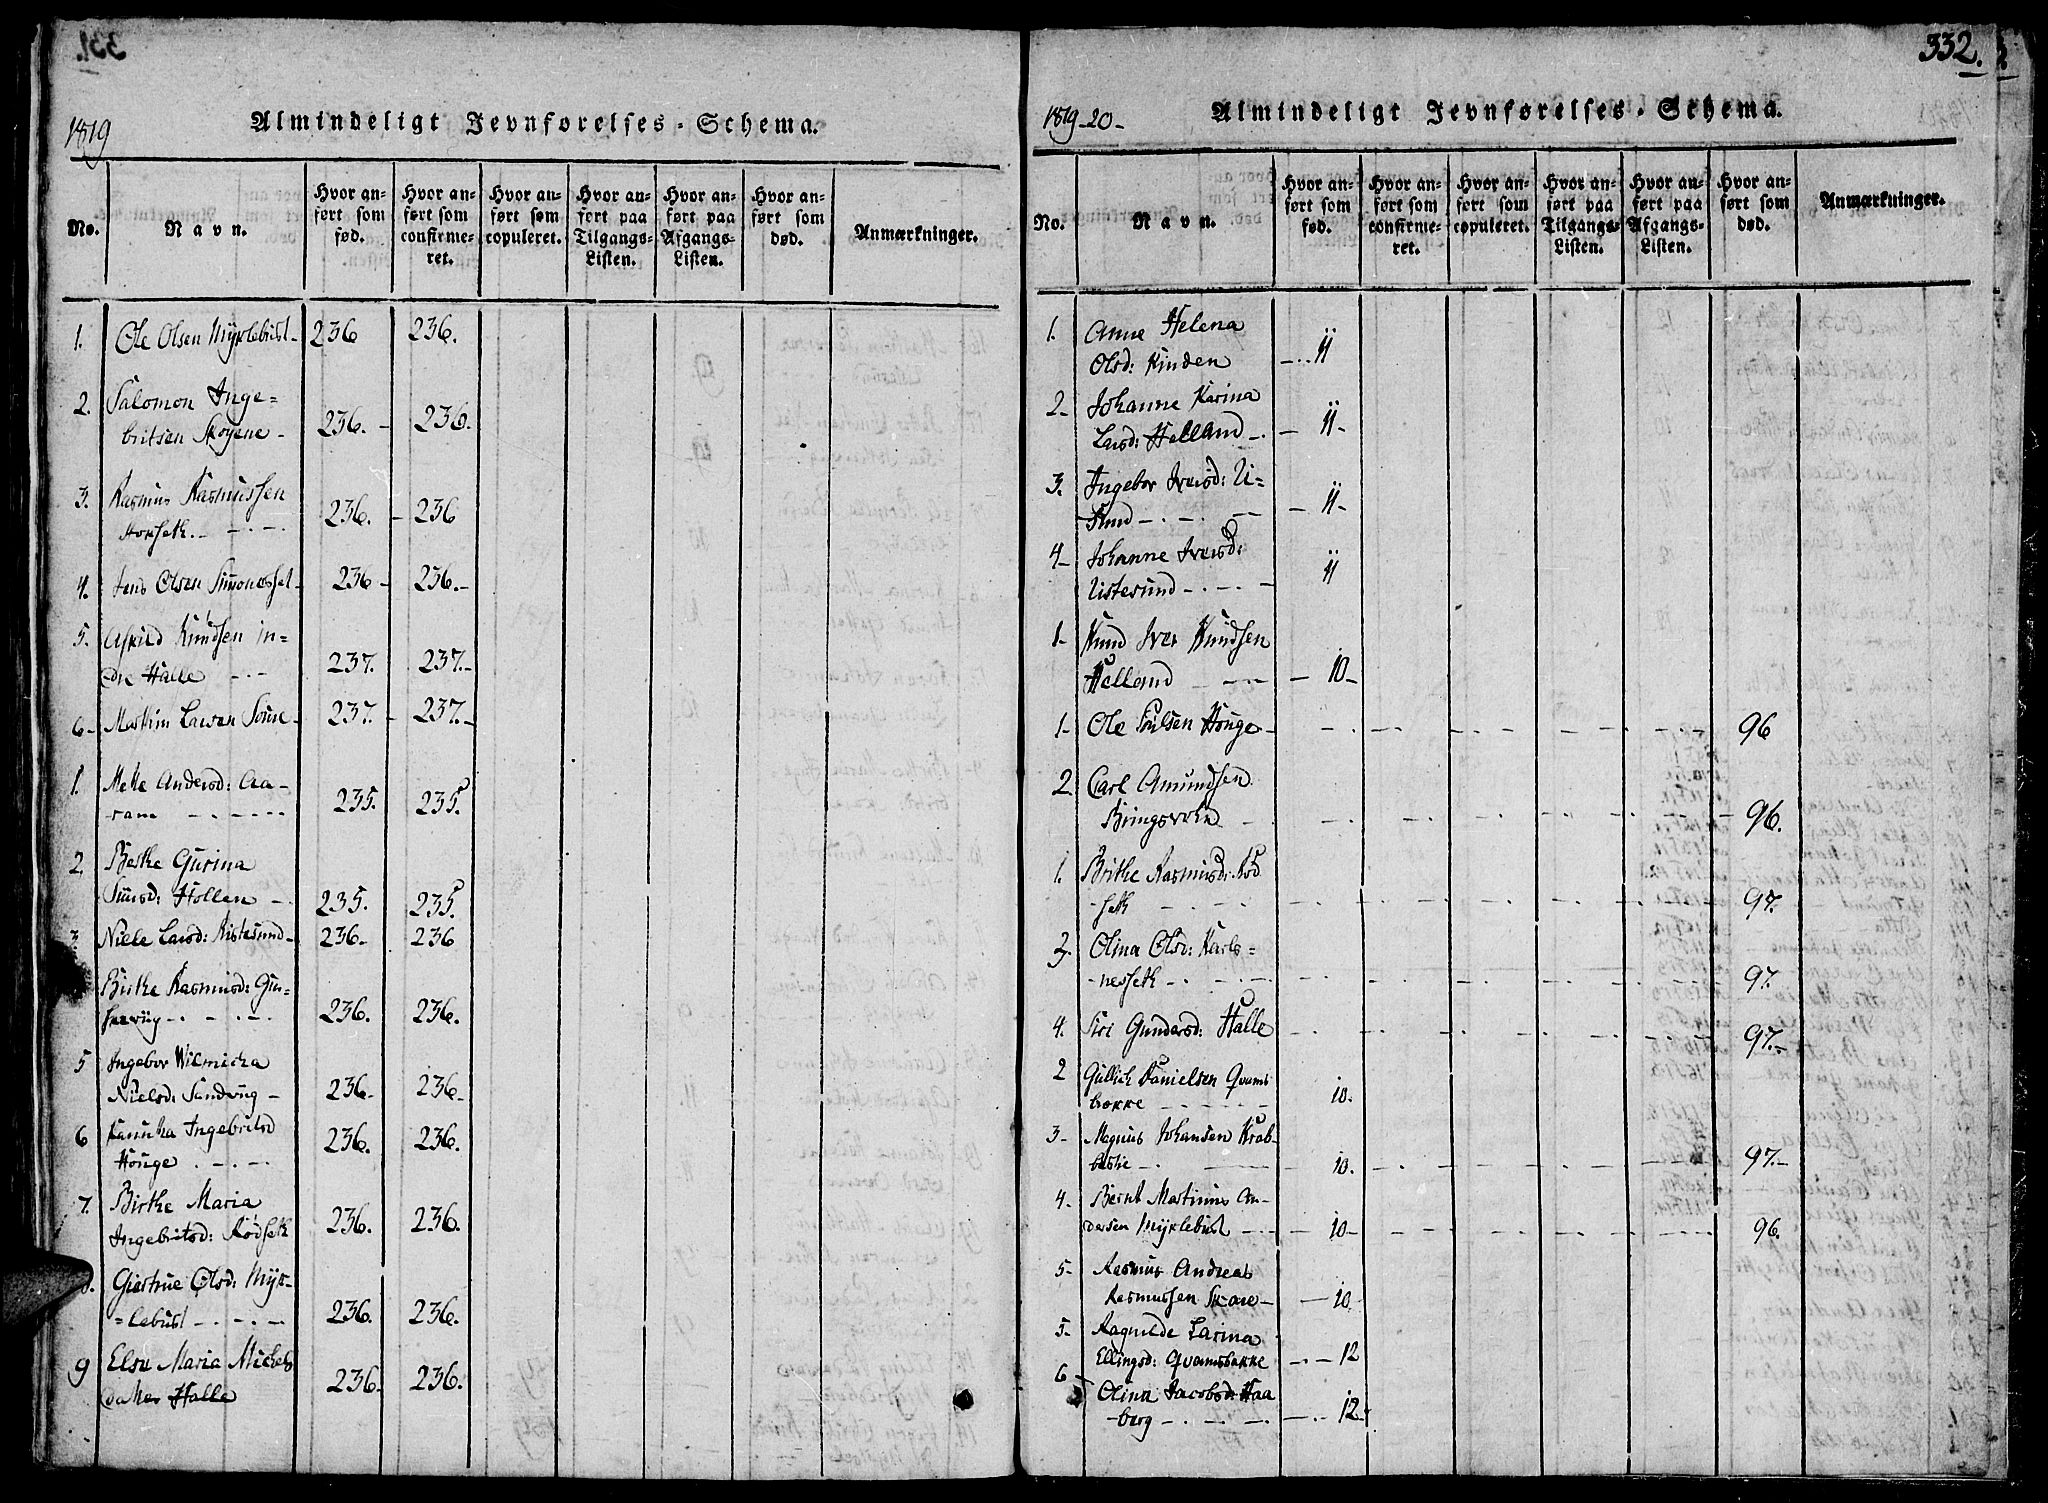 331.
1819
Almindeligt Jevnførelses-Schema.
No.
Navn.
Hvor an-
ført som
fød.
Hvor an-
ført som
confirme-
ret.
Hvor an-
ført som
copuleret.
Hvor an-
ført paa
Tilgangs-
Listen.
Hvor an-
ført paa
Afgangs-
Listen.
Hvor an-
ført som
død.
Anmærkninger.
1. Ole Olsen Myklebust 236 236.
2. Salomon Inge=
britsen Skoyene 236. 236.
3. Rasmus Rasmussen
Horseth. 236. 236
4. Jens Olsen Simones 236 236.
5. Knudsen in=
dre Halle 237. 237.
6 Larsen 237. 237.
1. Mette Andersd: Aa-
ram 235. 235.
2. Berthe Gurina
Hollen 235. 235.
3. Larsd: Ristesund 236 236
Birthe Rasmusd: Gur=
236. 236.
5 Ingebor
Nielsd: Sandvig 236 236
6 Ingebritsd
Houge 236. 236.
7. Birthe Maria
Ingebritsd: Rødseth 236. 236.
8. Giertrue Olsd: Myk-
=lebust 236. 236.
9 Maria Michels
datter Halle 236 236.
332.
1819-20-
Almindeligt Jevnførelses-Schema.
No.
Navn.
Hvor an-
ført som
fød.
Hvor an-
ført som
confirme-
ret.
Hvor an-
ført som
copuleret.
Hvor an-
ført paa
Tilgangs-
Listen.
Hvor an-
ført paa
Afgangs-
Listen.
Hvor an-
ført som
død.
Anmærkninger.
1. Anne Helena
Olsd: Kinden 11
2 Johanne Karina
Larsd: Helland 11
3. Ingebor Iversd: Ui=
stsund 11
4 Johanne Iversd:
11
1 Knud Iver Knudsen
Helland 10
1 Ole Poulsen Houge 96
2. Carl Amundsen
96.
1. Brithe Rasmusd: Rød
seth 97.
2. Olina Olsd: Karls=
nesseth 97.
4. Siri Gundersd: Halle 97.
2 Danielsen Qvams
bække 10.
3 Magnus Johansen Krab-
bestie 10. 97.
4. Bernt Martinus An-
dersen Myklebust 10 96.
5 Rasmus Andreas
Rasmussen Skare 10
5 Ragnilde Larina
Ellingsd: Qvamsbække 12
6 Olina Jacobsd: Haa
berg 12